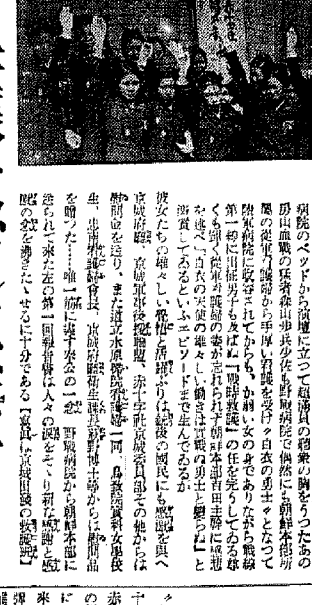 病院のベッドから演壇に立つて超満員の聴衆の胸をうつたあの
房山血戦の猛者森山歩兵少佐も野戦病院で偶然にも朝鮮本部所
属の従軍看護婦から手厚い看護を受け〃白衣の勇士〃となつて
陸軍病院に収容されてからも、か弱い女の身でありながら戦線
第一線に出征男子も及ばぬ『戦時救護』の任を完うしてゐる雄
くも輝く従軍看護婦の姿が忘れられず朝鮮本部吉田主幹に感想
を述べ『白衣の天使の雄々しい働きは實戰の勇士と變らぬ』と
激賞してゐるといふエピソードまで生んでゐるが
彼女たちの雄々しい覺悟と活躍ぶりは銃後の國民にも感激を與へ
京城府廳、京城軍事後援聯盟、赤十字社京城委員部その他からは
慰問金を送り、また道立水原醫院看護婦一同、
生、 看護婦會長、京城府廳衛生課長 博士等からは慰問品
を贈つた……唯一筋に燃す奉公の一念 野戦病院から朝鮮本部に
送られて來た左の第一回報告書は人々の涙をそゝり新な感謝と感
激の念を沸きたゝせるに十分である【寫眞は京城出發の救護班】